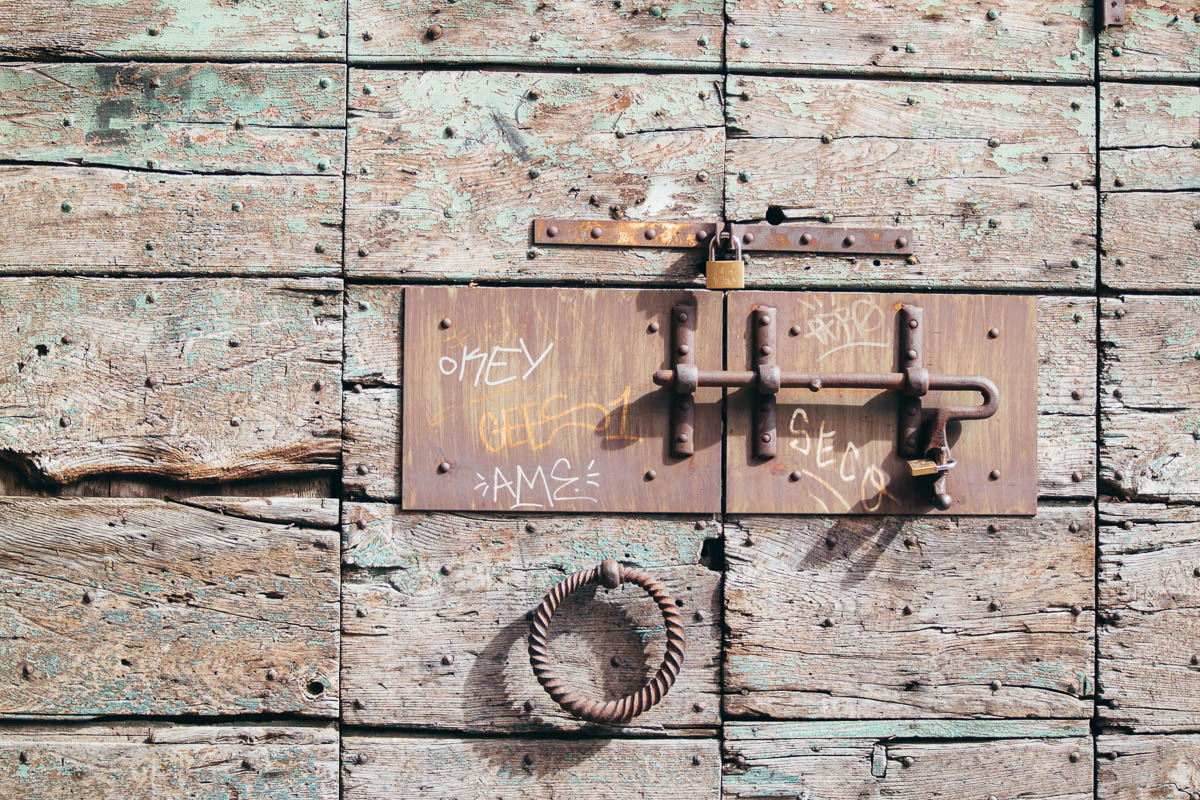 OKEY
GEES 1
AME
SECO